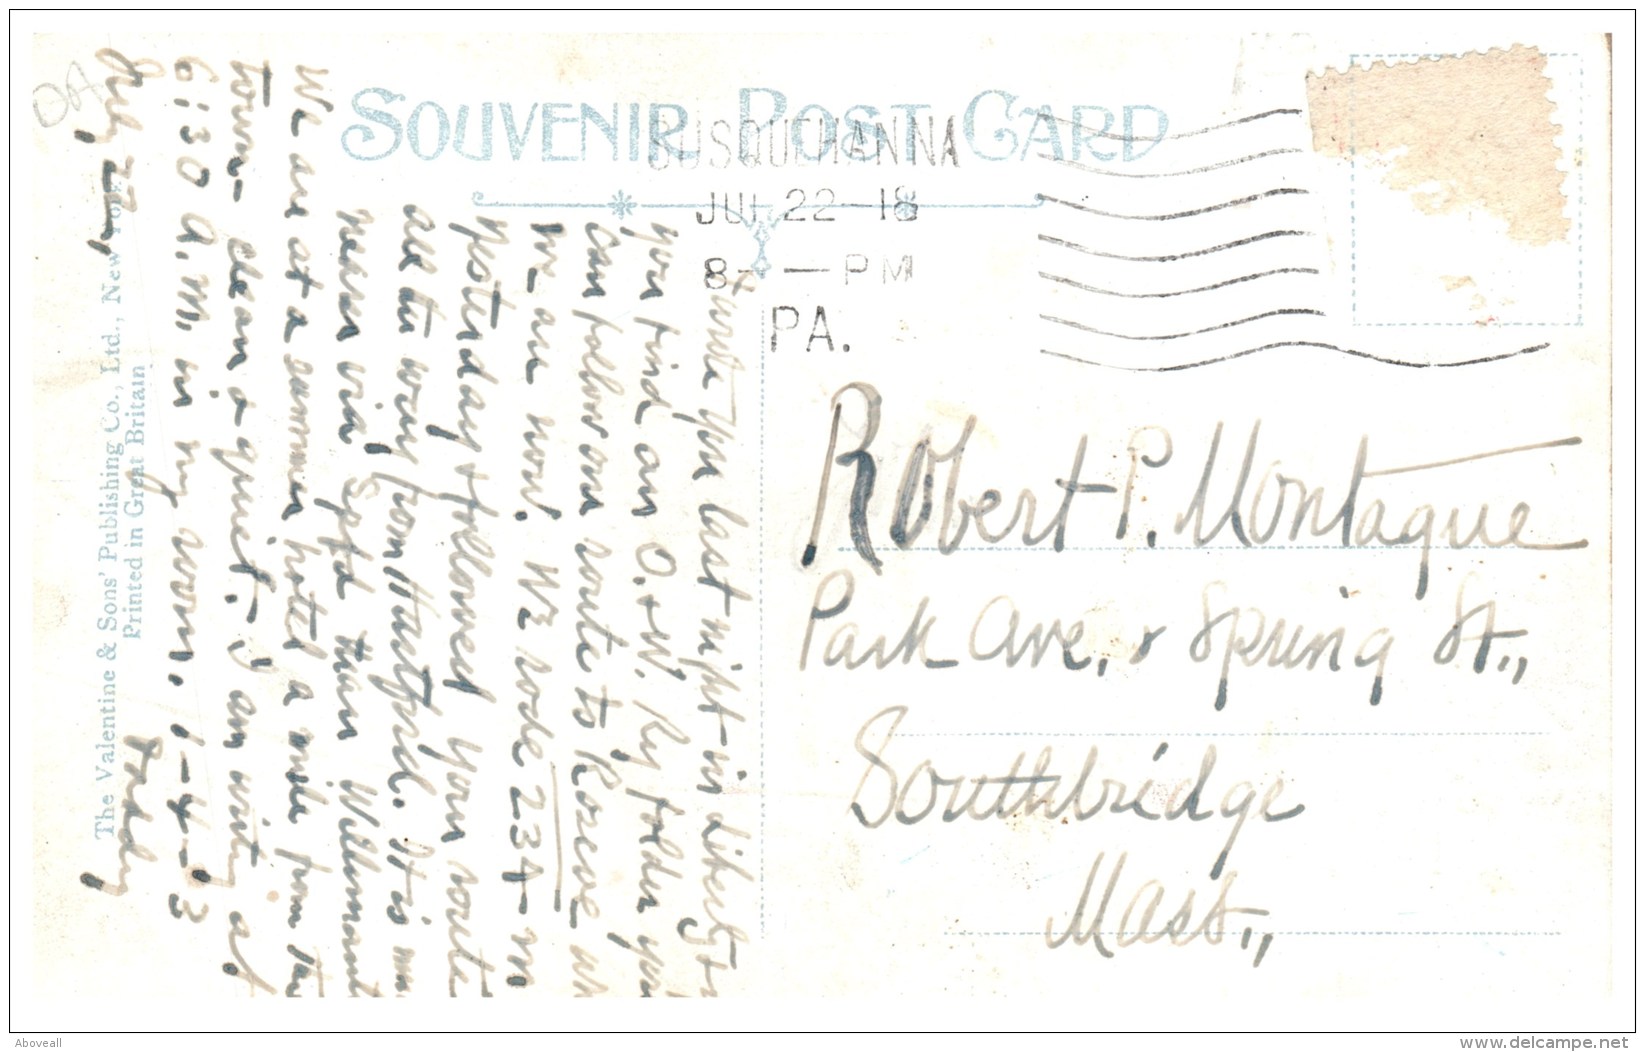 SOUVENIR POST CARD
SUSQUEHANNA
JUL 22-18
8- — PM
PA.
Robert P. Montague
Park Ave. & Spring St.,
Southbridge
Mass.,
July 22,
Wrote you last night in Liberty &
you find an O. & W. Ry folder you
can follow our route to Roscoe wh
we are now. We rode 234 m
yesterday & followed your route
all the way from Hartford. It is m
nearer via Spfd than Willimant
We are at a summer hotel a mile from the
town - clean & quiet. I am writing at
6:30 A.M. in my room. 1-4-3
Daddy
The Valentine & Sons' Publishing Co., Ltd., New York
Printed in Great Britain
Aboveall
www.delcampe.net